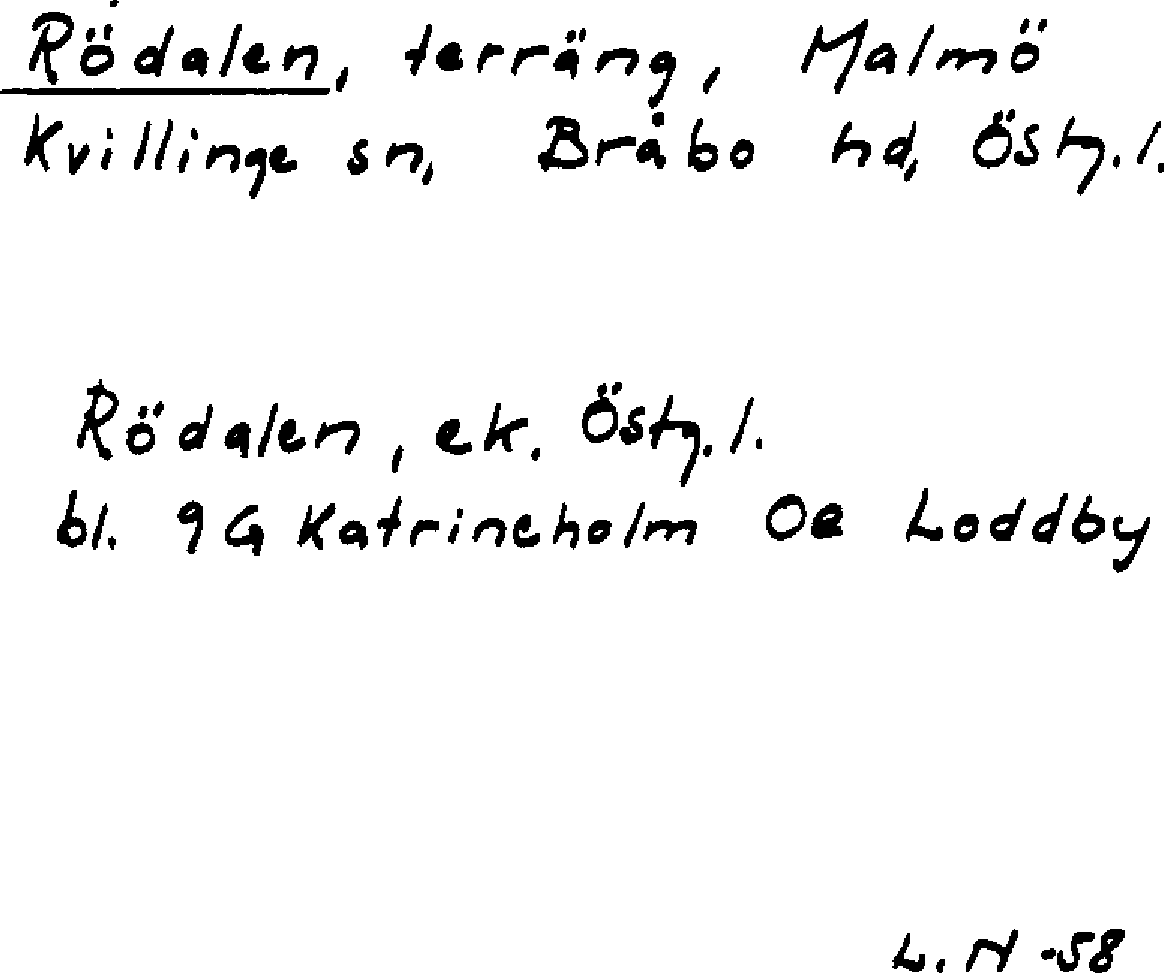 Rödalen, terräng, Malmö
Kvillinge sn, Bråbo hd, Östg.l.
Rödalen, ek. Östg.l.
bl. 9G Katrineholm Oe Loddby
L. N -58